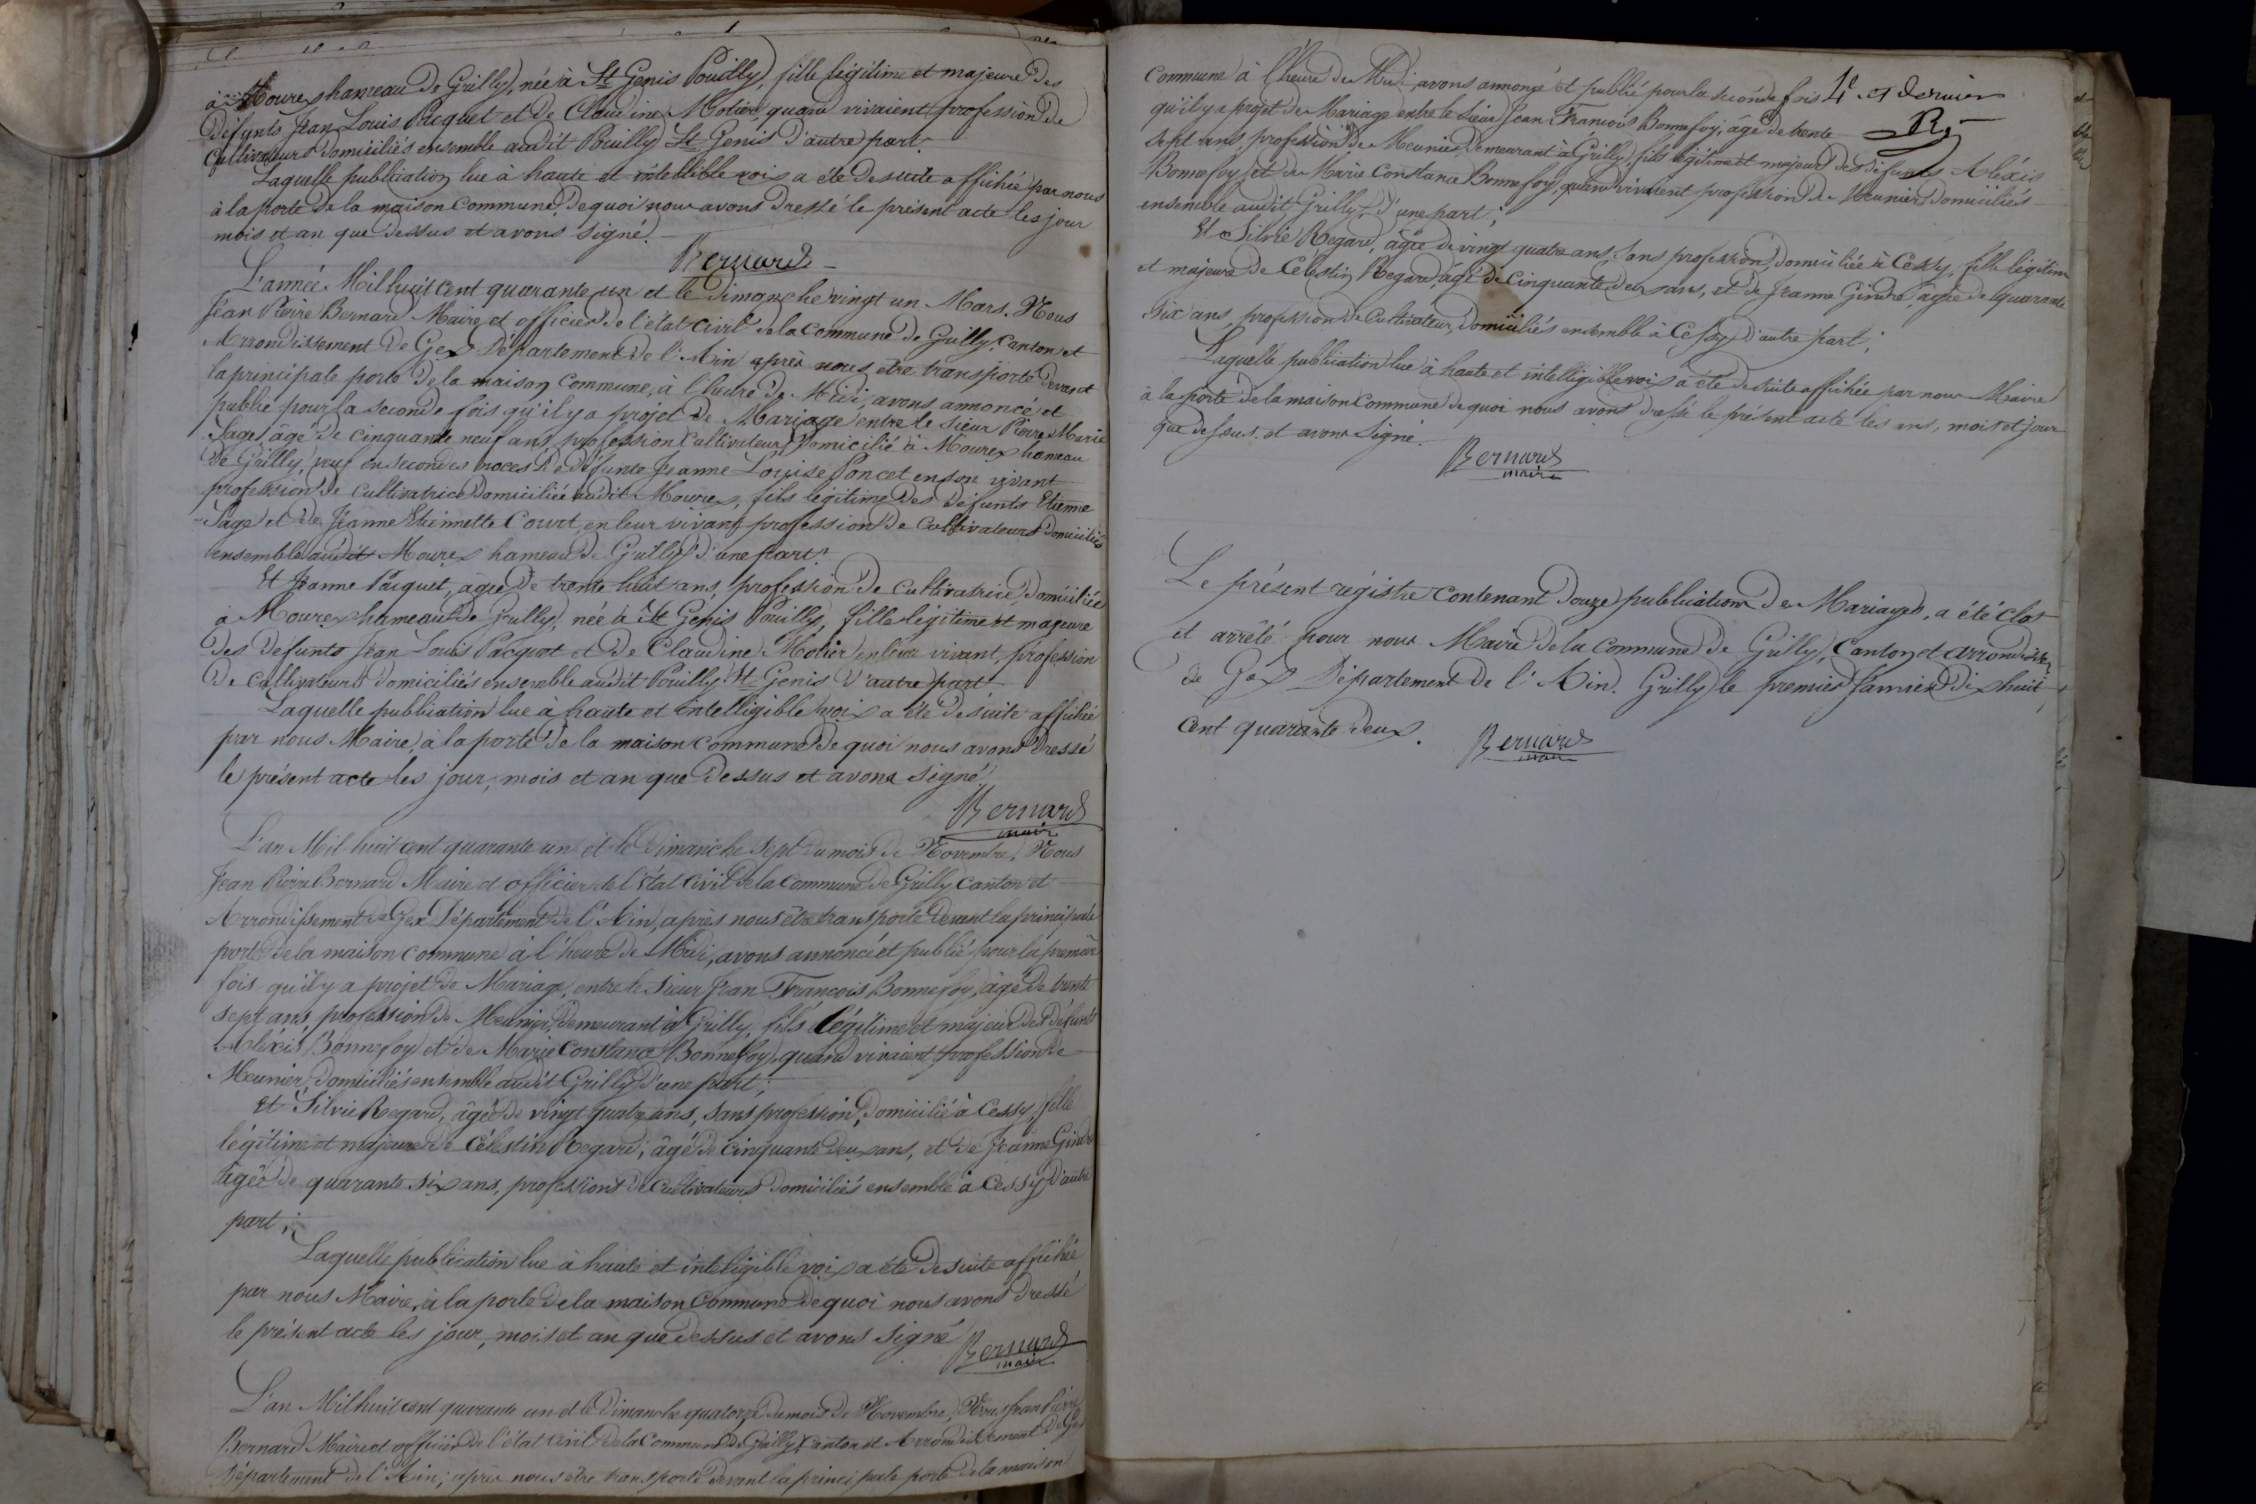 à Mourex hameau de Grilly, née à St Genis Pouilly, fille légitime et majeure des
défunts Jean Louis Pacquet et de Claudine Motier, quand vivaient profession de
Cultivateurs domiciliés ensemble audit Pouilly St Genis d'autre part.
Laquelle publication lue à haute et intellible voix a été desuite affichée par nous
à la porte de la maison commune. De quoi nous avons dressé le présent acte les jour
mois et an que dessus et avons signé.
Bernard
L'année Mil huit cent quarante un et le Dimanche vingt un Mars. Nous
Jean Pierre Bernard Maire et officier de l'état civil de la commune de Grilly, Canton et
Arrondissement de Gex Département de l'Ain après nous être transporté devant
la principale porte de la maison commune, à l'heure de Midi, avons annoncé et
publié pour la seconde fois qu'il y a projet de Mariage entre le Sieur Pierre Marie
Sage âgé de cinquante neuf ans, profession Cultivateur, domicilié à Mourex hameau
de Grilly, veuf en secondes noces de défunte Jeanne Louise Poncet en son vivant
profession de cultivatrice domiciliée audit Mourex, fils légitime des défunts Etienne
Sage et de Jeanne Etiennette Court, en leur vivant profession de Cultivateurs domiciliés
ensemble audit Mourex hameau de Grilly d'une part.
Et Jeanne Pacquet, âgée de trente huit ans, profession de cultivatrice, domiciliée
à Mourex hameau de Grilly, née à St Genis Pouilly, fille légitime et majeure
des défunts Jean Louis Pacquot et de Claudine Motier en leur vivant, profession
de cultivateurs domiciliés ensemble audit Pouilly St Genis d'autre part
Laquelle publication lue à haute et intelligible voix a été desuite affichée
par nous Maire, à la porte de la maison commune de quoi nous avons dressé
le présent acte les jour, mois et an que dessus et avons signé.
Bernard
maire
L'an Mil huit cent quarante un et le Dimanche sept du mois de Novembre, Nous
Jean Pierre Bernard Maire et officier de l'état civil de la Commune de Grilly Canton et
Arrondissement de Gex Département de l'Ain, après nous être transporté devant la principale
porte de la maison commune à l'heure de Midi, avons annoncé et publié pour la première
fois qu'il y a projet de Mariage, entre le Sieur Jean François Bonnefoy, âgé de trente
sept ans, profession de Meunier, demeurant à Grilly, fils légitime et majeur des défunts
Aléxis Bonnefoy et de Marie Constance Bonnefoy, quand vivaient, profession de
Meunier, domiciliés ensemble audit Grilly d'une part;
Et Silvie Regard, âgée de vingt quatre ans, sans profession, domicilié à Cessy, fille
légitime et majeure de Célestin Regard, âgé de cinquante deux ans, et de Jeanne Gindre
âgée de quarante six ans, professions de Cultivateurs domiciliés ensemble à Cessy d'autre
part;
Laquelle publication lue à haute et inteligible voix a été desuite affichée
par nous Maire, à la porte de la maison Commune de quoi nous avons dressé
le présent acte les jour, mois et an que dessus et avons signé
Bernard
maire
L'an Mil huit cent quarante un et le Dimanche quatorze du mois de Novembre, Nous Jean Pierre
Bernard Maire et officier de l'état civil de la Commune de Grilly Canton et Arrondissement de Gex
Département de l'Ain, après nous être transporté devant la principale porte de la maison
4e et dernier
commune à l'heure de Midi, avons annoncé et publié pour la seconde fois
qu'il y a projet de Mariage entre le Sieur Jean François Bonnefoy, âgé de trente
sept ans, profession de Meunier, demeurant à Grilly, fils légitime et majeur des défunts Aléxis
Bonnefoy et de Marie Constance Bonnefoy, quand vivaient profession de Meunier domiciliés
ensemble audit Grilly d'une part;
Et Silvie Regard, âgée de vingt quatre ans, sans profession, domiciliée à Cessy, fille légitime
et majeure de Célestin Regard âgé de cinquante deux ans, et de Jeanne Gindre âgée de quarante
six ans, profession de Cultivateur, domiciliés ensemble à Cessy d'autre part;
Laquelle publication lue à haute et intelligible voix a été desuite affichée par nous Maire
à la porte de la maison commune de quoi nous avons dressé le présent acte les ans, mois et jour
que dessus, et avons signé.
Bernard
maire
Le présent régistre contenant douze publications de Mariages, a été clos
et arrêté pour nous Maire de la commune de Grilly, Canton et arrondissement
de Gex Département de l'Ain. Grilly le premier Janvier dix huit
cent quarante deux.
Bernard
maire